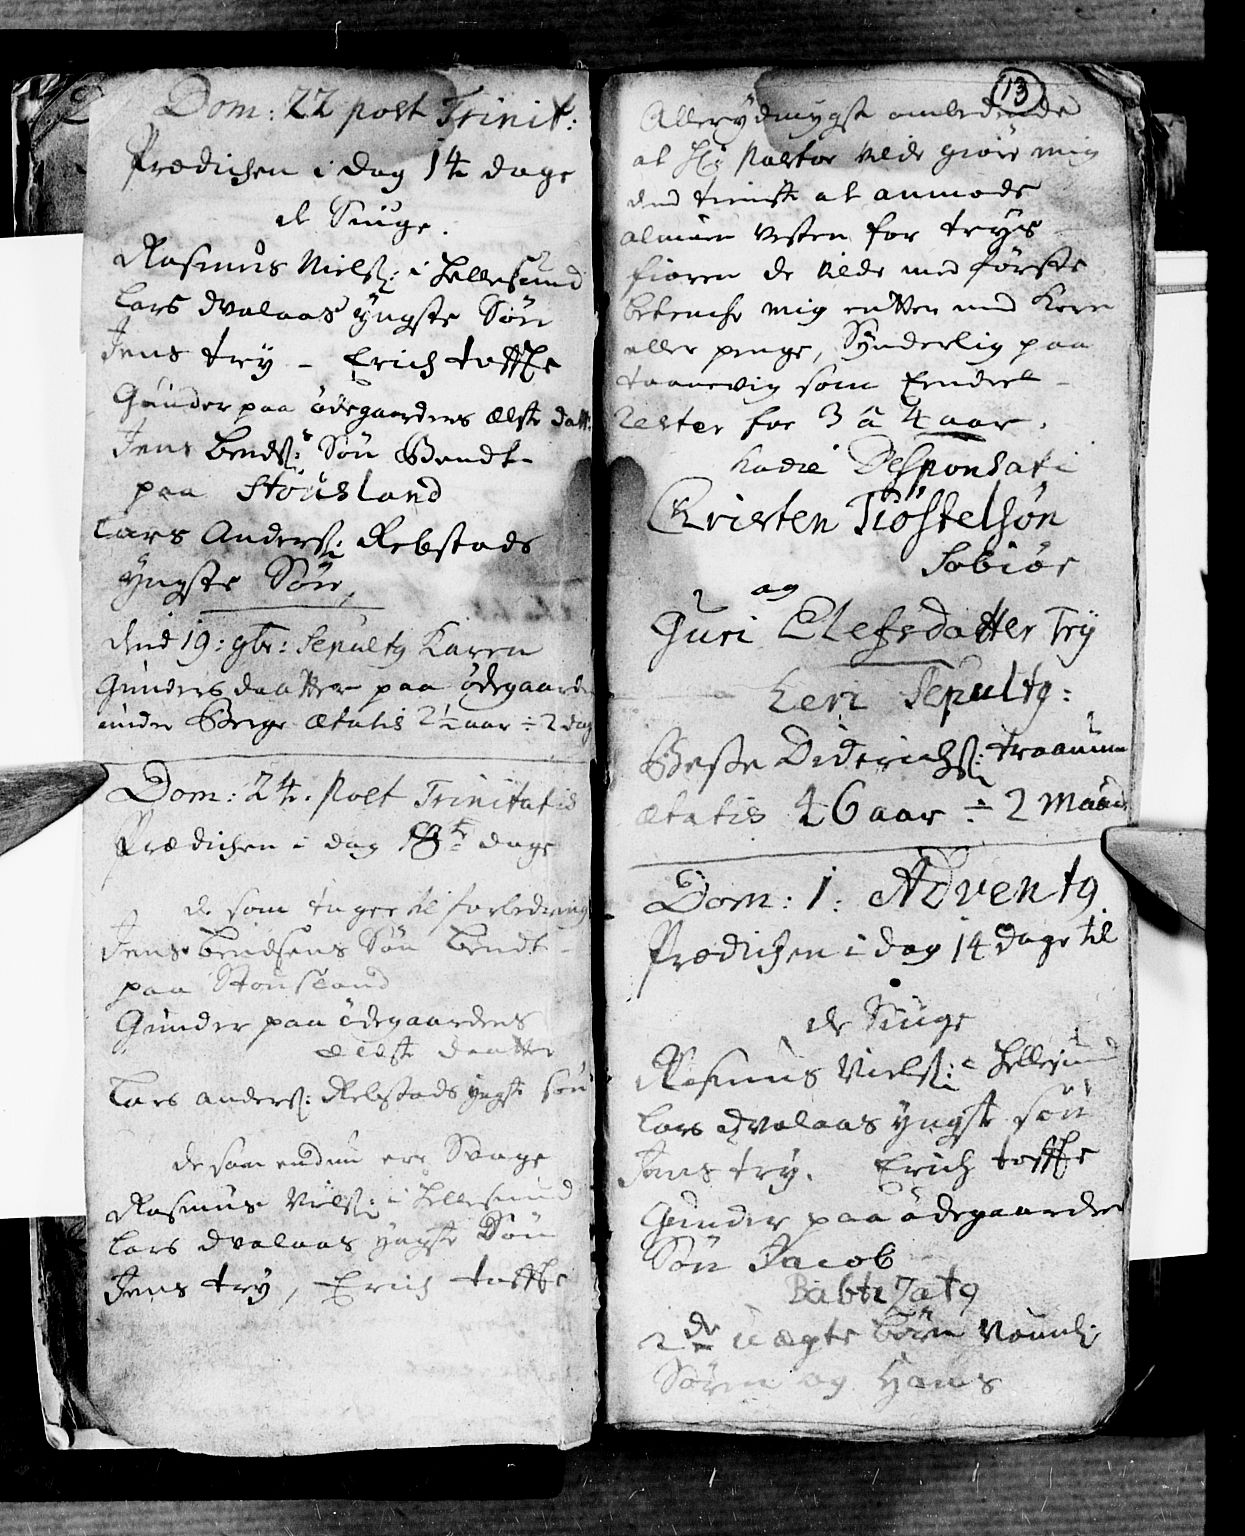 Dom: 22 post Trinit:
Prædichen i dag 14 dage
de Siuge.
Rasmus Niels: i Hellesund
Lars dvalaas yngste Søn
Jens try - Erich toffte
Gunder paa ødegaardens ælste datt:
Jens Bends: Søn Bendt
paa Stousland
Lars Anders: Rebstads
yngste Søn,
dend 19: 9br: Sepulty Karen
Gunders daatter paa ødegaarden
under Berge ætatis 2½ aar ÷ 2 dag
Dom: 24. Post Trinitatis
Prædichen i dag 8te dage
de som trenger til forbedring
Jens Bendsens Søn Bendt
paa Stousland
Gunder paa ødegaardens
ælste daatter
Lars anders: Rebstads yngste søn
de som endnu ere Svage
Rasmus Niels: i Hellesund
Lars dvalaas yngste Søn
Jens try, Erich toffte
13
Allerydmygst ombedende
at Hr: Pastor vilde giøre mig
dend tienste at anmode
almuen Vesten for trys
fioren de vilde med første
betenche mig enten med Korn
eller penge, Synderlig paa
som Eendeel
rester for 3 â 4 aar.
hodie Desponsati
Christen Tiøstelsøn
Søbiør
og
Guri Elefsdatter Try
heri Sepulty:
Beste Diderichs:
ætatis 46 aar ÷ 2 Maan
Dom: 1. Adventy
Prædichen i dag 14 dage til
de Siuge
Rasmus Niels: i Hellesund
Lars dvalaas yngste søn
Jens try. Erich toffte
Gunder paa ødegaarden
Søn Jacob
Babtizaty
2de uægte børn Naunl:
Søren og Hans